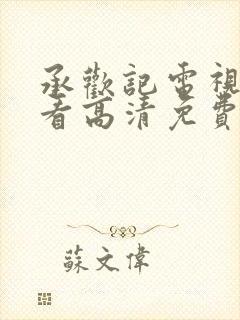 承歡記電視
看高清免費
蘇文偉